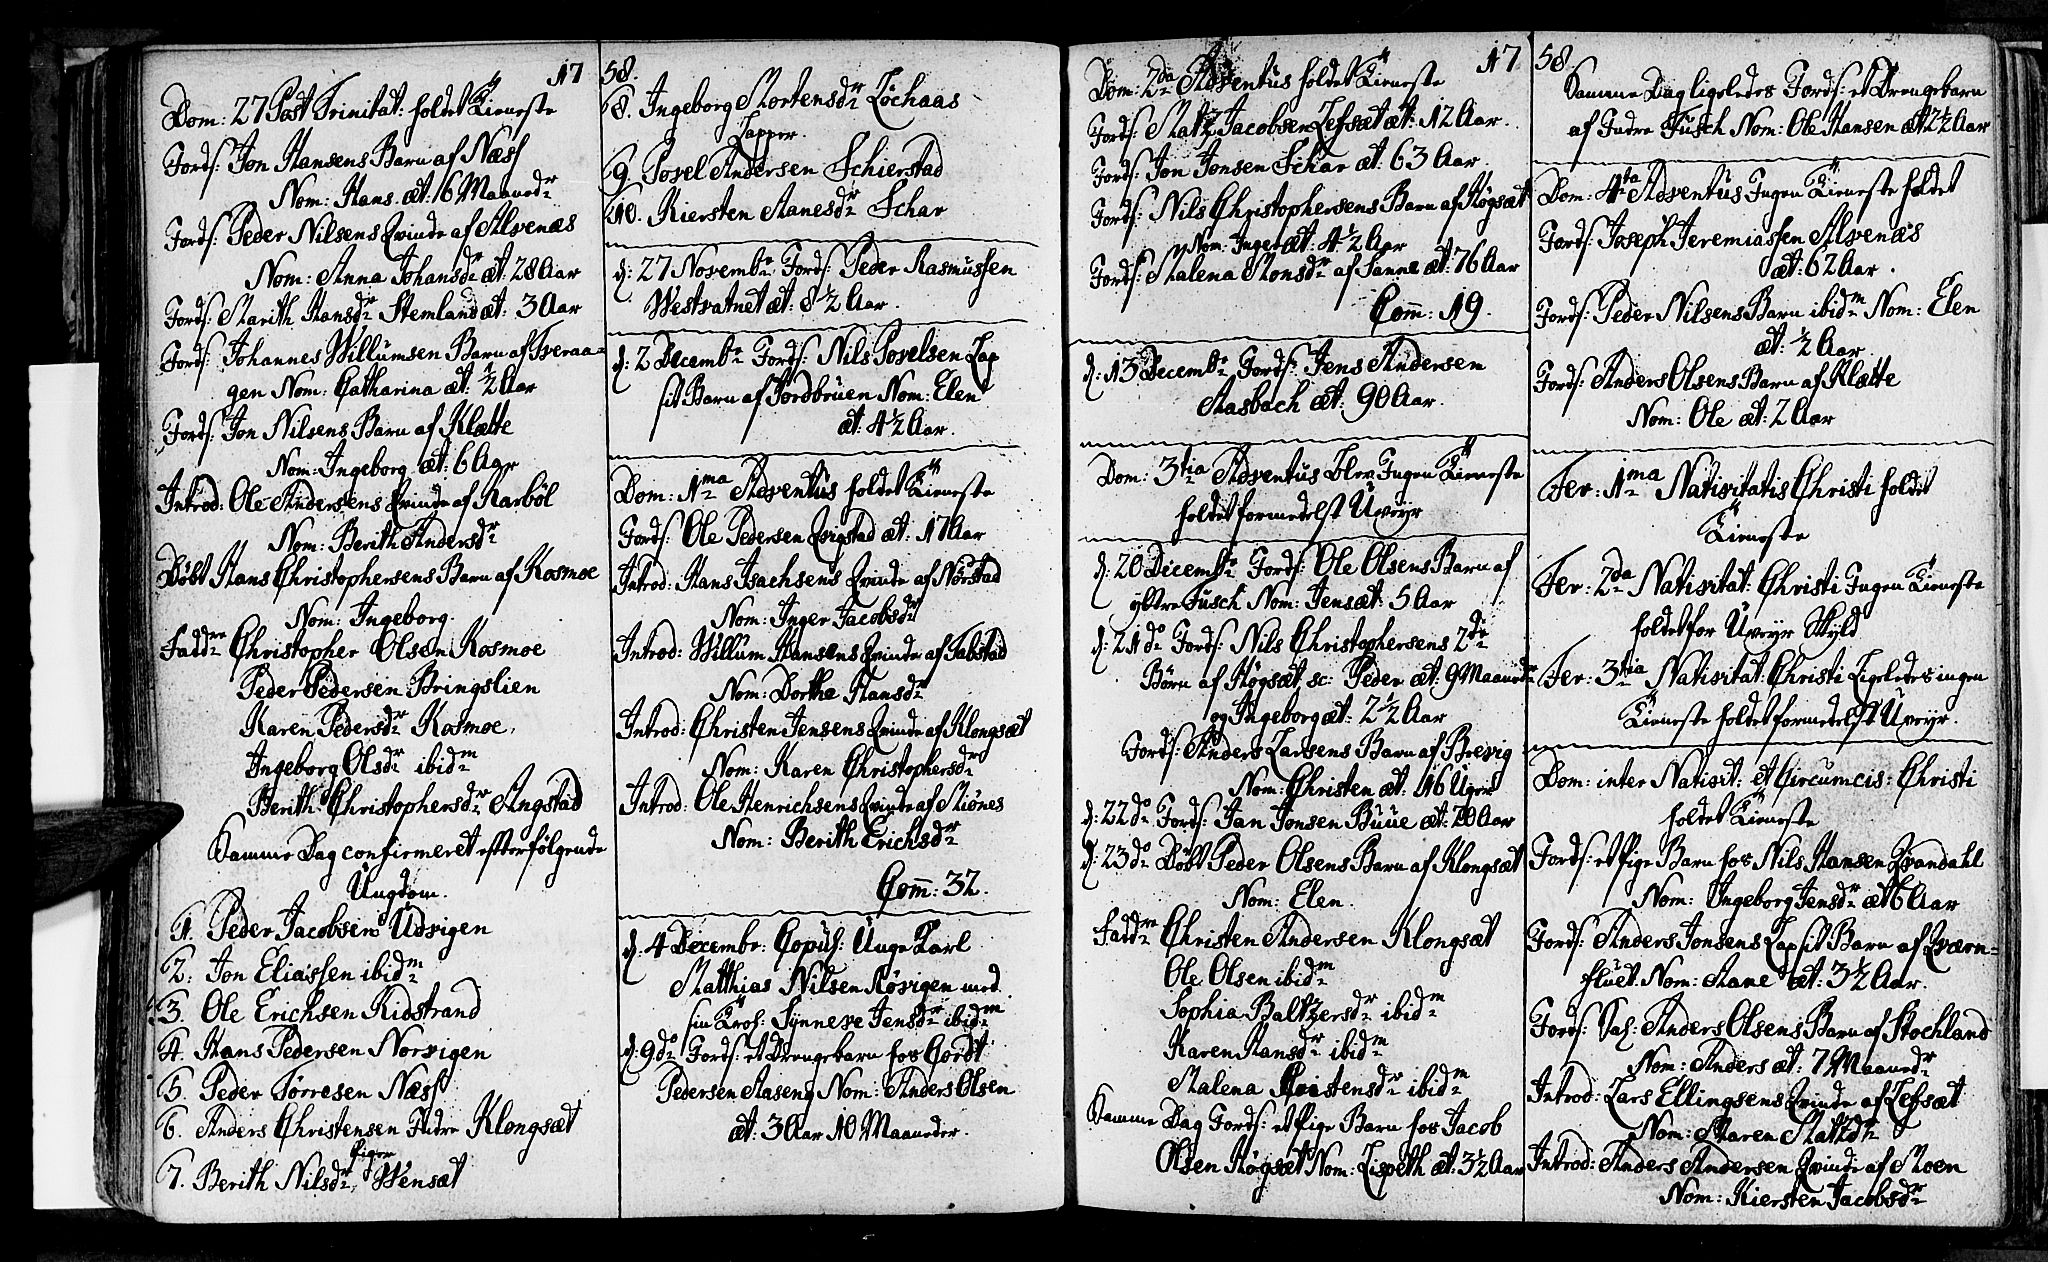 17
Dom: 27 Post Trinitat: holdet Tieneste
Jords: Jon Hansens Barn af Næss
Nom: Hans æt: 6 Maaned
Jords: Peder Nilsens Qvinde af Alvenæs
Nom: Anna Johansdr æt: 28 Aar
Jords: Marith Hansdr Stemland æt: 3 Aar
Jords: Johannes Willumsen Barn af Tveraa-
gen Nom: Catharina æt: ½ Aar
Jords: Jon Nilsens Barn af Klætte
Nom: Ingeborg æt: 6 Aar
Introd: Ole Andersens Qvinde af Karböl
Nom: Berith Andersdr
Döbt Hans Christophersens Barn af Kosmoe
Nom: Ingeborg.
Faddre Christopher Olsen Kosmoe
Peder Pedersen Bringslien
Karen Pedersdr Kosmoe,
Ingeborg Olsdr ibidm
Berith Christophersdr Angstad
Samme Dag confirmeret efterfölgende
Ungdom.
1. Peder Jacobsen Udvigen
2. Jon Eliassen ibidm
3. Ole Erichsen Ridstrand
4. Hans Pedersen Norvigen
5. Peder Törresen Næss
6. Anders Christensen Indre Klongsæt
Pigen
7. Berith Nilsdr, Wensæt
58.
8. Ingeborg Mortensdr Löchaas
Lapper.
9. Povel Andersen Schierstad
10. Kiersten Aanesdr Schar
d: 27 Novembr Jords: Peder Rasmussen
Westvatnet æt: 8½ Aar.
d: 2 Decembr Jords: Nils Povelsen Lap
sit Barn af Jordbruen Nom: Elen
æt: 4½ Aar.
Dom: 1ma Adventus holdet Tieneste
Jords: Ole Pedersen Qvigstad æt: 17 Aar
Introd: Hans Isachsens Qvinde af Nörstad
Nom: Inger Jacobsdr
Introd: Willum Hansens Qvinde af Tabstad
Nom: Dorthe Hansdr
Introd: Christen Jensens Qvinde af Klongsæt
Nom: Karen Christophersdr
Introd: Ole Henrichsens Qvinde af Miönes
Nom: Berith Erichsdr
Com: 32.
d. 4 Decembr: Copul: Unge Karl
Matthias Nilsen Rösvigen med
sin Trol: Synneve Jensdr ibidm
d: 9do Jords: et Drengebarn hos Cordt
Pedersen Aaseng Nom: Anders Olsen
æt: 3 Aar 10 Maaneder.
17
Dom: 2da Adventus holdet Tieneste
Jords: Matz Jacobsen Lefsæt æt: 12 Aar.
Jords: Jon Jonsen Schar æt: 63 Aar.
Jords: Nils Christophersens Barn af Högsæt
Nom: Inger æt: 4½ Aar
Jords: Malena Monsdr af Sanne æt: 76 Aar
Com: 19.
d: 13 Decembr Jords: Jens Andersen
Aasbach æt: 90 Aar.
Dom: 3tia Adventus blev Ingen Tieneste
holdet formedelst Uveyr
d: 20 Decembr Jords: Ole Olsens Barn af
ybtre Fusch Nom: Jens æt: 5 Aar
d: 21do Jords: Nils Christophersens 2de
Börn af Högsæt sc: Peder æt: 9 Maanedr
og Ingeborg æt: 2½ Aar
Jords: Anders Larsens Barn af Brevig
Nom: Christen æt: 16 Uger
d: 22do Jords: Jan Jonsen Buue æt: 70 Aar
d: 23do Döbt Peder Olsens Barn af Klongsæt
Nom: Elen.
Faddre Christen Andersen Klongsæt
Ole Olsen ibidm
Sophia Baltzersdr ibidm
Karen Hansdr ibidm
Malena Christensdr ibidm
Samme Dag Jords: et Pige Barn hos Jacob
Olsen Högsæt Nom: Lispeth æt: 3½ Aar
58.
Samme Dag ligeledes Jords: et Drengebarn
af Indre Fusch Nom: Ole Hansen æt 2½ Aar
Dom: 4ta Adventus Ingen Tieneste holdet
Jords: Joseph Jeremiassen Alvenæs
æt: 62 Aar.
Jords: Peder Nilsens Barn ibidm Nom: Elen
æt: ½ Aar
Jords: Anders Olsens Barn af Klætte
Nom: Ole æt: 2 Aar
Fer: 1ma Nativitatis Christi holdet
Tieneste
Fer: 2da Nativitat: Christi Ingen Tieneste
holdet for Uveyr Skyld
Fer: 3tia Nativitat: Christi Ligeledes ingen
Tieneste holdet formedelst Uveyr.
Dom: inter Nativit: et Circumcis: Christi
holdet Tieneste
Jords: et Pige Barn hos Nils Hansen Qvandahl
Nom: Ingeborg Jensdr æt 6 Aar
Jords: Anders Jonsens Lap sit Barn af Qværn-
fluet. Nom: Aane æt: 3½ Aar.
Jords: Sal: Anders Olsens Barn af Stochland
Nom: Anders æt: 7 Maanedr
Introd: Lars Ellingsens Qvinde af Lefsæt
Nom: Maren Matzdr
Introd: Anders Andersen Qvinde af Moen
Nom: Kiersten Jacobsdr